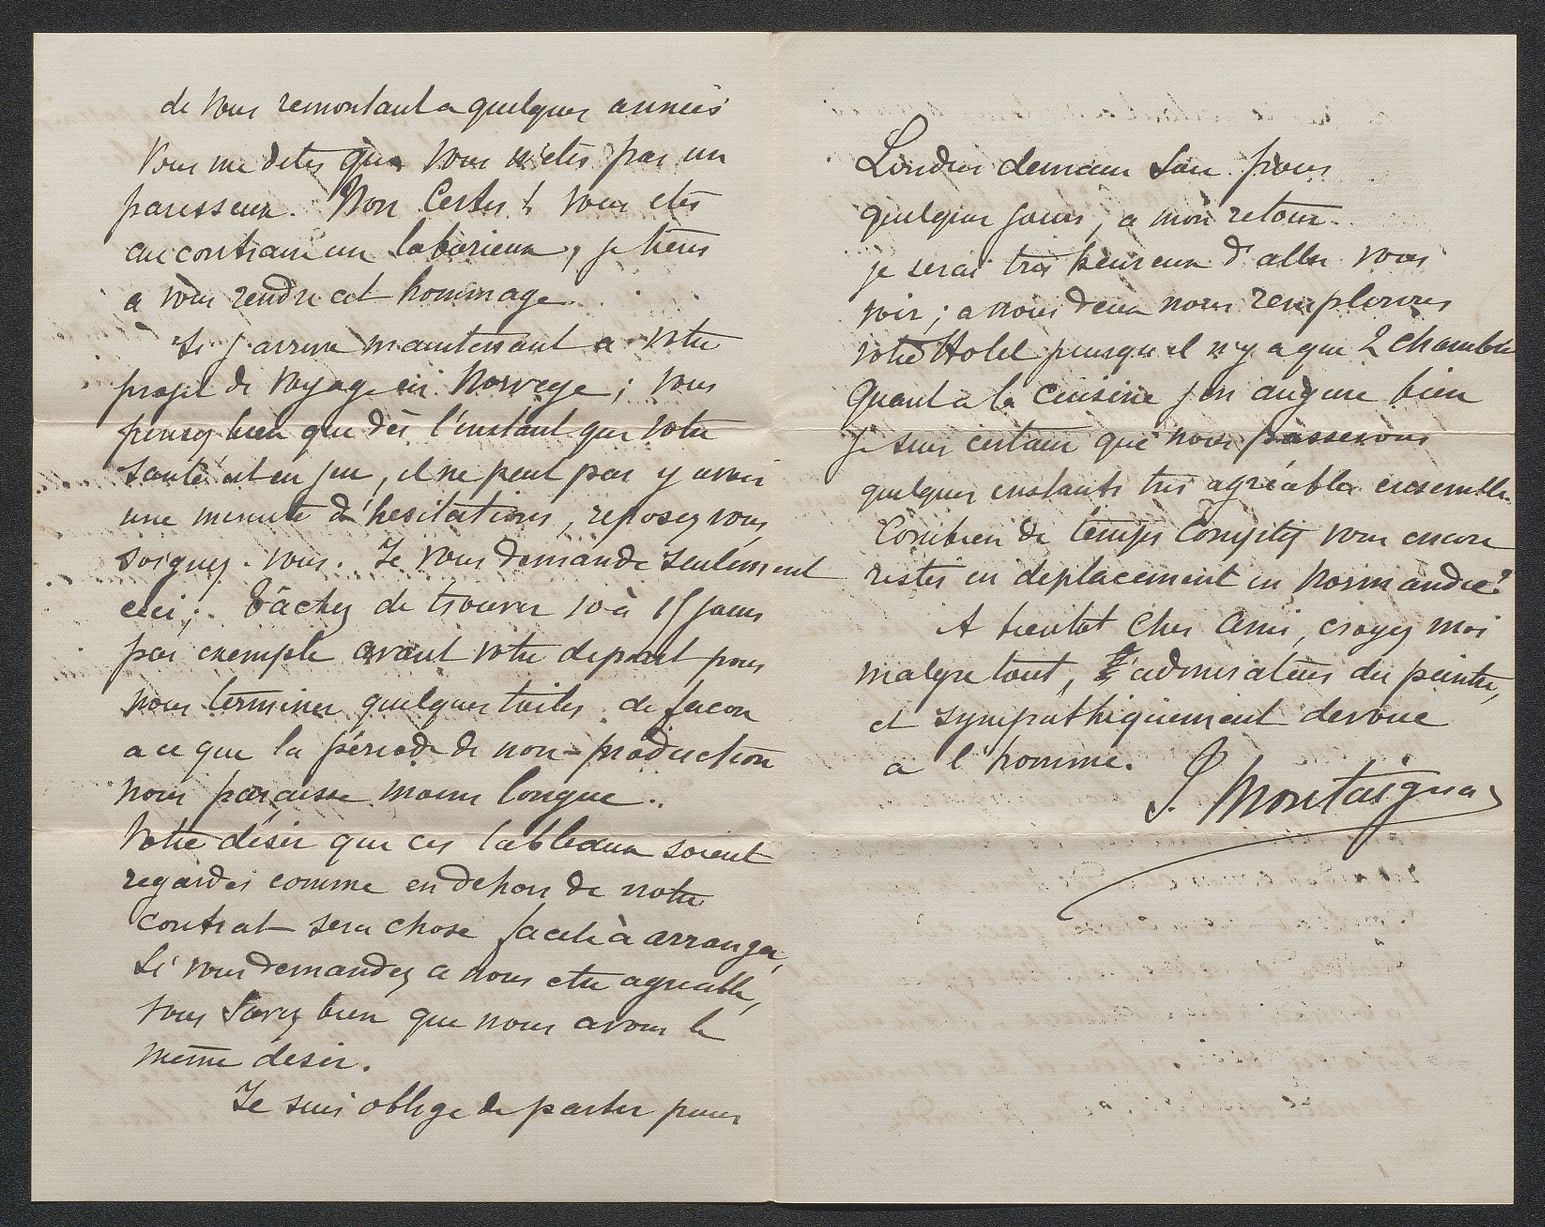 de vous remontant a quelques années
Vous me dites que vous n'etes pas un
paresseux. Non Certes ! vous etes
au contraire un laborieux, je tiens
a vous rendre cet hommage.
Si j'arrive maintenant a votre
projet de voyage en Norvege ; vous
pensez bien que dès l'instant que votre
santé est en jeu, il ne peut pas y avoir
une minute d'hesitations, reposez vous,
soignez-vous. Je vous demande seulement
ceci ; Tâchez de trouver 10 à 15 jours
par exemple avant votre depart pour
nous terminer quelques toiles de facon
a ce que la période de non-production
nous paraisse moins longue..
Votre désir que ces tableaux soient
regardés comme en dehors de notre
contrat sera chose facile à arranger,
Si vous demandez a nous etre agreable,
vous savez bien que nous avons le
même desir.
Je suis oblige de partir pour
Londres demain soir pour
quelques jours, a mon retour
je serai très heureux d'aller vous
voir ; a nous deux nous remplirons
votre Hotel puisqu'il n'y a que 2 chambres
Quant à la cuisine j'en augure bien
je suis certain que nous passerons
quelques instants tres agréables ensemble.
Combien de temps comptez vous encore
rester en deplacement en Normandie ?
A bientot cher Ami, croyez moi
malgre tout, admirateur du peintre,
et sympathiquement devoué
a l'homme.
Montaignac